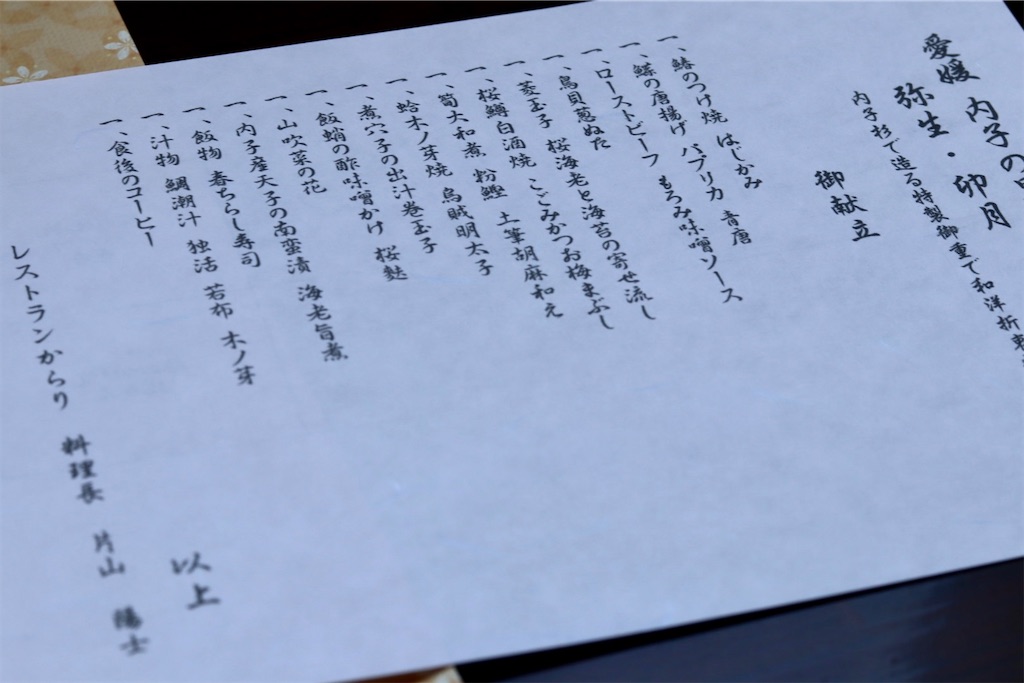 愛媛 内子の
弥生・卯月
内子杉で造る特製御重で和洋折
御献立
一、鰆のつけ焼 はじかみ
一、鰈の唐揚げ パプリカ 青唐
一、ローストビーフ もろみ味噌ソース
一、鳥貝葱ぬた
一、菱玉子 桜海老と海苔の寄せ流し
一、桜鱒白酒焼 こごみかつお梅まぶし
一、筍大和煮 粉鰹 土筆胡麻和え
一、蛤木ノ芽焼 烏賊明太子
一、煮穴子の出汁巻玉子
一、飯蛸の酢味噌かけ 桜麩
一、山吹菜の花
一、内子産天子の南蛮漬 海老旨煮
一、飯物 春ちらし寿司
一、汁物 鯛潮汁 独活 若布 木ノ芽
一、食後のコーヒー
以上
レストランからり 料理長 片山 陽士